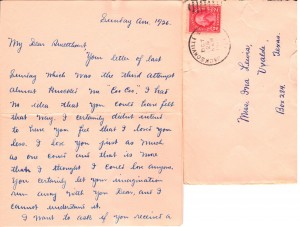 Sunday Am. 10:30.
My Dear Sweetheart:
Your letter of last
Sunday which was the third attempt
almost no
no idea that you could have felt
that way. I certainly didnt intend
to have you feel that I love you
less. I love you just as much
as one could and that is more
than I thought I could love anyone.
You certainly let your imagination
run away with you Dear, and I
cannot understand it.
I want to ask if you receive a
Miss Ina Lewis,
Uvalde,
Texas.
Box 204